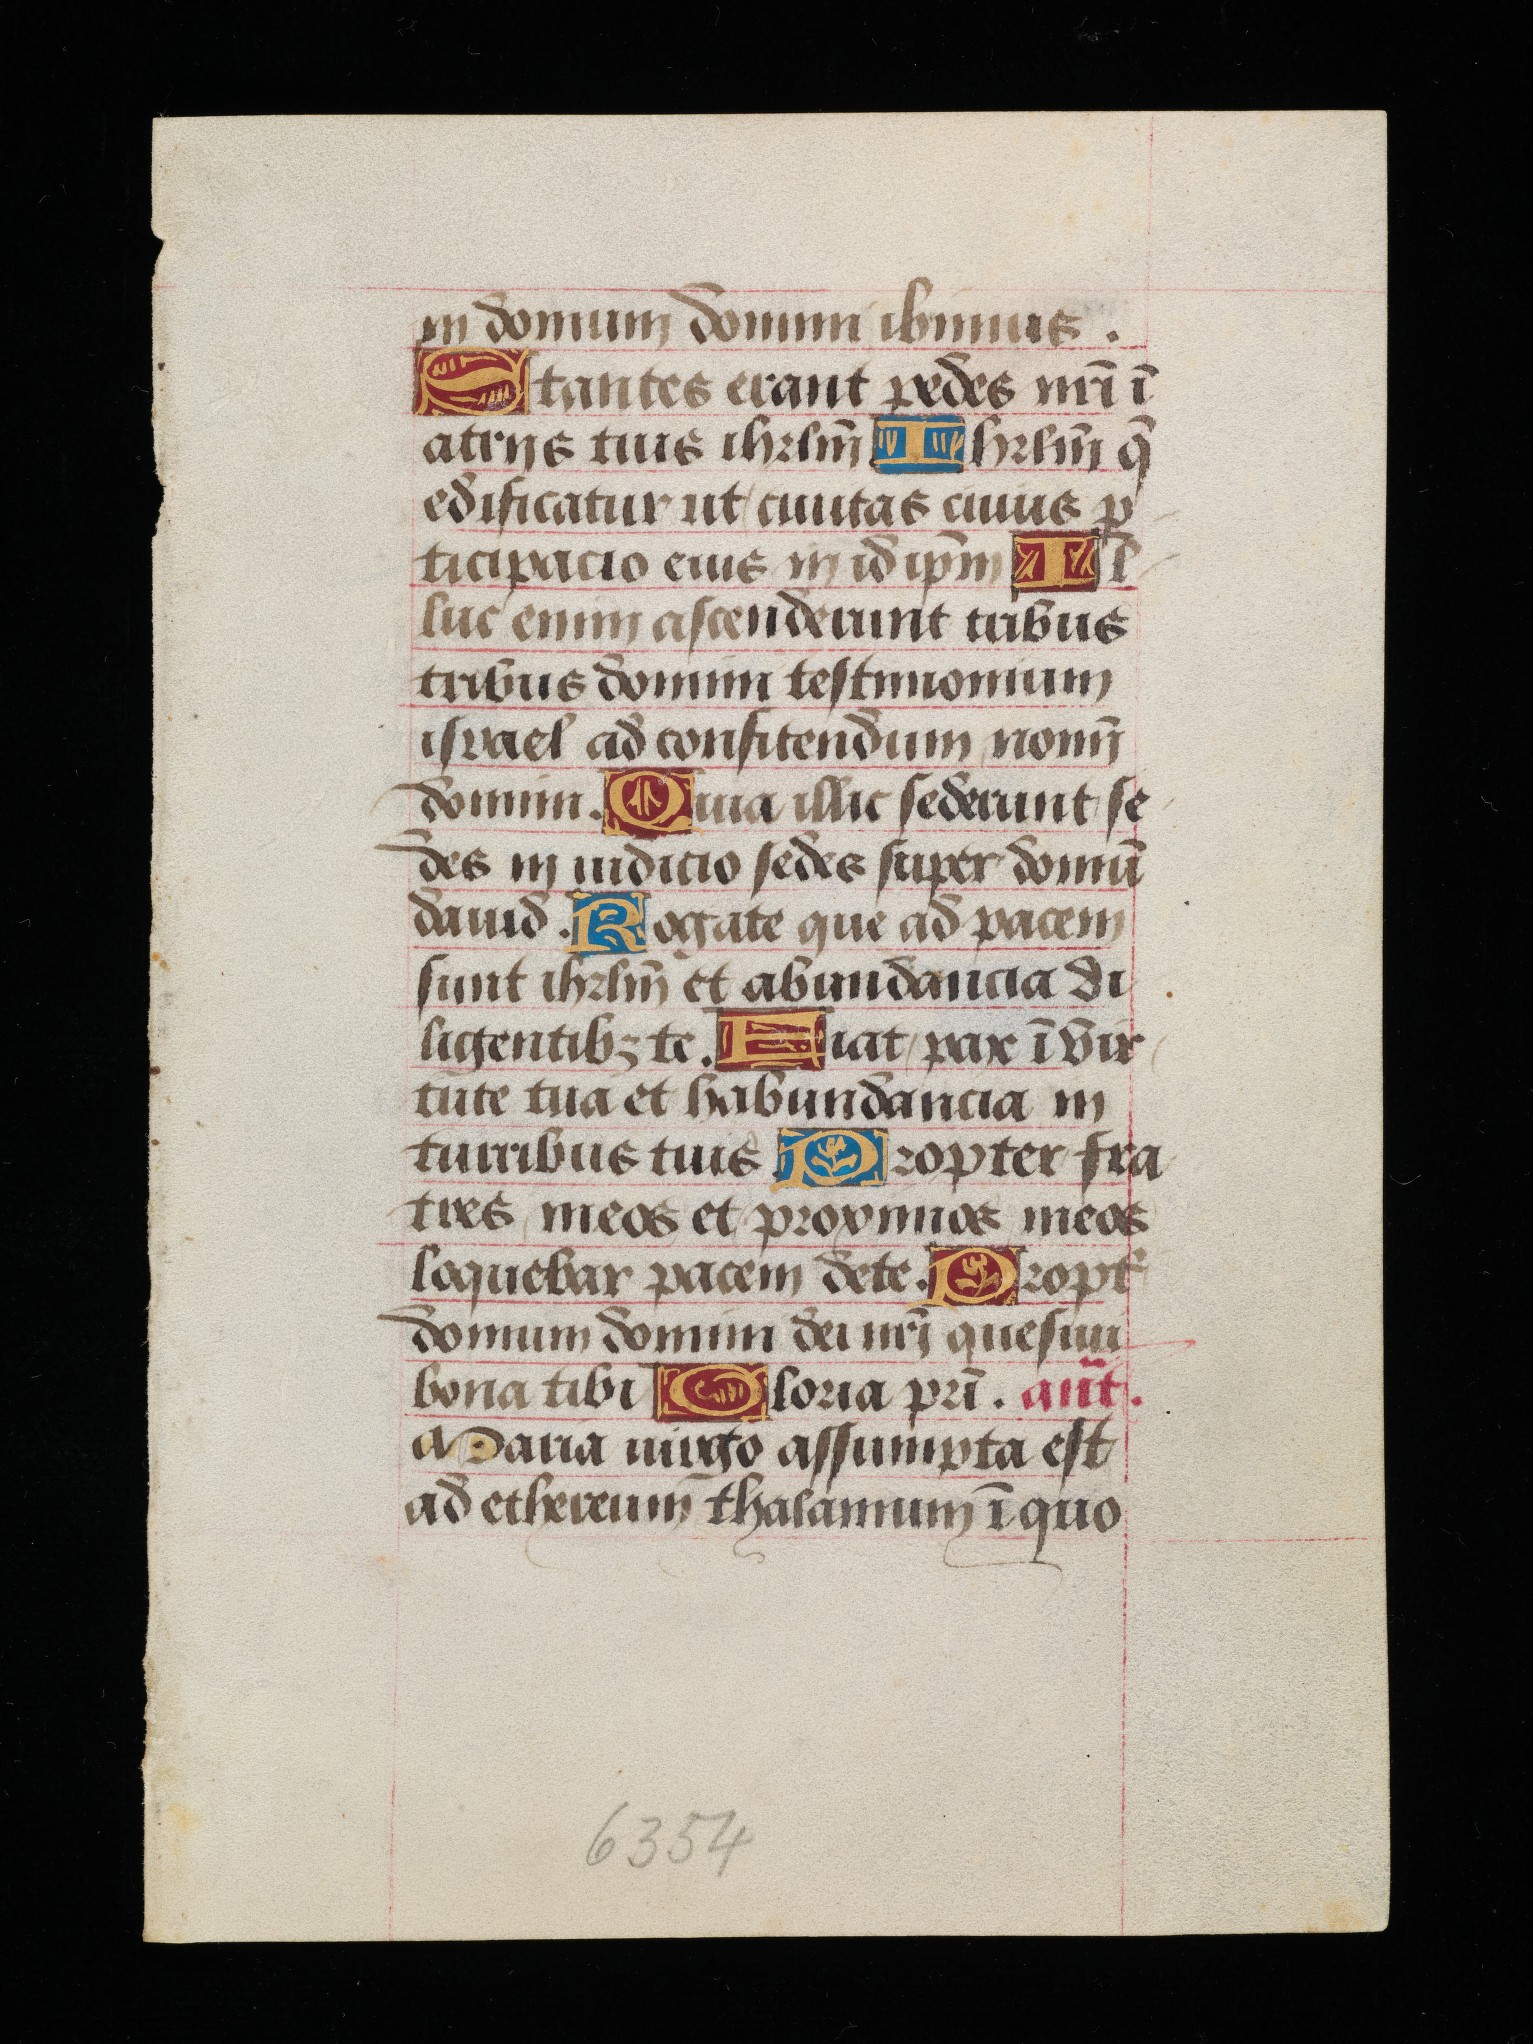 in domum domini ibimus .
Stantes erant pedes nr̄i ī
atrijs tuis ihrlm̄ Ihrlm̄ q̄
edificatur ut ciuitas cuius p
ticipacio eius in id ip̄m Il
luc enim ascenderunt tribus
tribus domini testimonium
israel ad confitendum nomī
domini . Quia illic sederunt se
des in iudicio sedes super domū
dauid . Rogate que ad pacem
sunt ihrlm̄ et abundancia di
ligentibꝫ te . Fiat pax ī vir
tute tua et habundancia in
turribus tuis Propter fra
tres meos et proximos meos
loquebar pacem de te . Propt̄
domum domini dei nr̄i quesiui
bona tibi Gloria pr̄i . an̄t .
Maria uirgo assumpta est
ad ethereum thalamum ī quo
6354